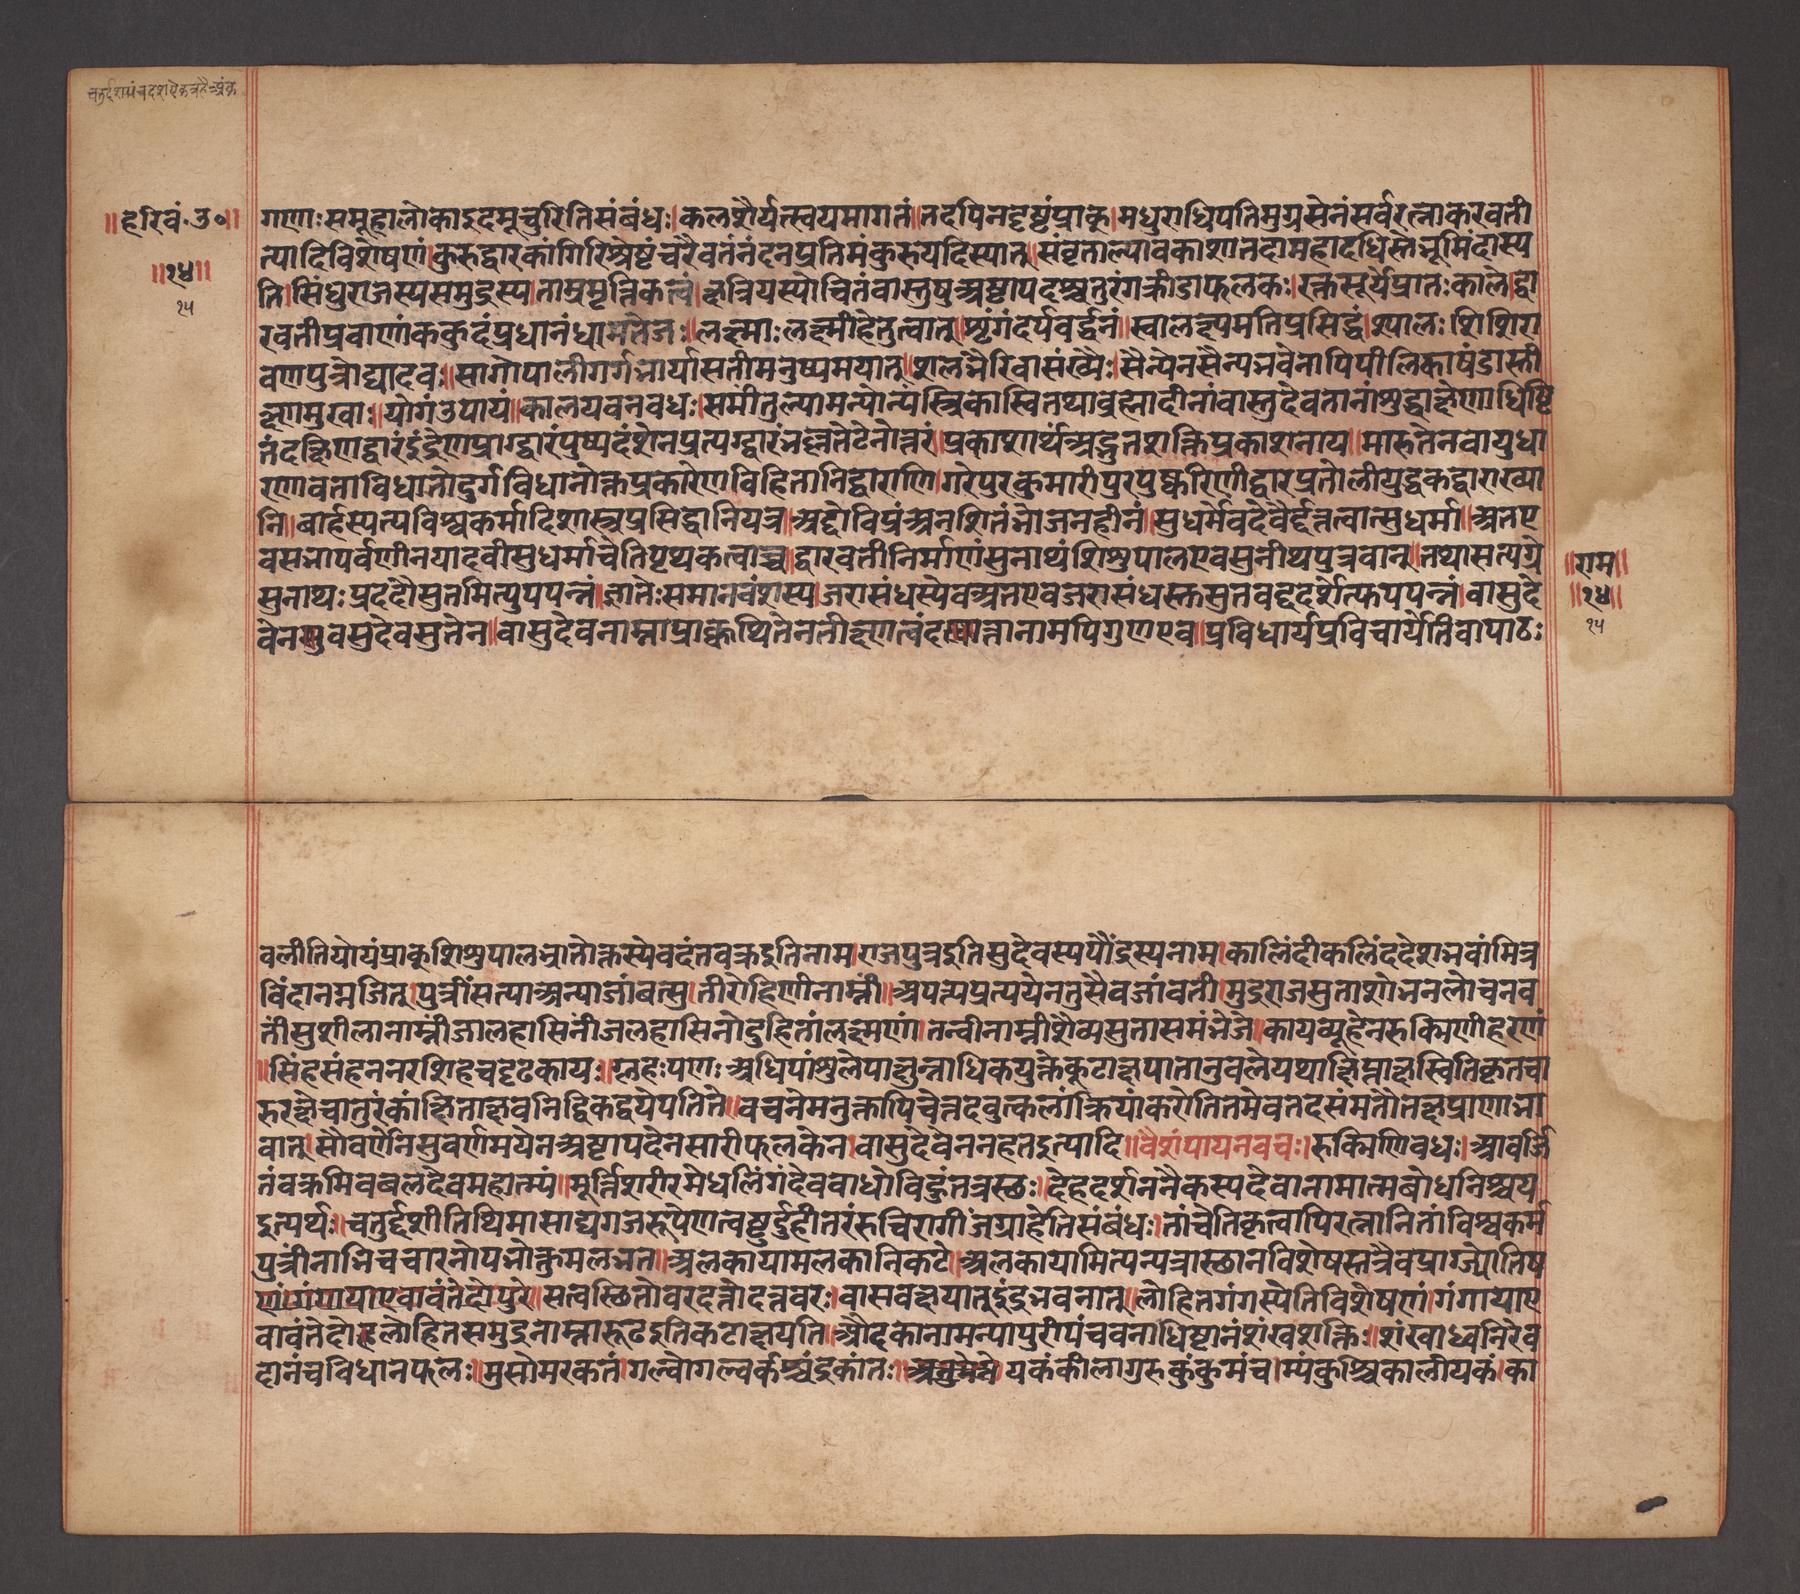 चतुर्दशपंचदशऐकत्रहैअंक
॥हरिवं.उ०॥
॥१४॥
१५
गणः समूहालोकाइदमूचुरितिसंबंधः।कलशैर्यत्स्वयमागतं।तदपिनदृष्टंप्राक्।मथुराधिपतिमुग्रसेनंसर्वरत्नाकरवती
त्यादिविशेषणं।कुरुद्वारकांगिरिश्रेष्टंचरैवतंनंदनप्रतिमंकुरुयदिस्यात्।संवृताल्पावकाशातदामहोदधिस्तभूमिंदास्य
ति।सिंधुराजस्यसमुद्रस्य।ताम्रमृत्तिकत्वं।क्षत्रियस्योचितंवास्तुषुअष्टापदश्चतुरंगक्रीडाफलकः।रक्तसूर्येप्रातःकाले।द्वा
रवतीप्रवाणंककुदंप्रधानंधामतेजः।लक्ष्माःलक्ष्मीहेतुत्वात्।शृंगंदर्पवर्द्धनं॥स्वालक्ष्यमतिप्रसिद्धं।श्यालःशिशिरा
वणपुत्रोद्यादवः॥सागोपालीगर्गभार्यासतीमनुष्यमयात्॥शलभैरिवासंख्यैः।सैन्येनसैन्यभवेनापिपीलिकाषंडास्ती
क्ष्णमुखाः॥योगंउपायं॥कालयवनवधः।समींतुल्यामन्योन्यंस्त्रिकोस्वितथाब्रह्मादीनांवास्तुदेवतानांशुद्धाक्षेणाधिष्टि
तंदक्षिणद्वारंइंद्रेणप्राग्द्वारंपुष्पदंशेनप्रत्यग्द्वारंभल्लतटेनोत्तरं।प्रकाशार्थंअद्भुतशक्तिप्रकाशनाय॥मारुतेनवायुधा
रणावताविधातोदुर्गविधानोक्तप्रकारेणविहितानिद्वाराणि।गरेपुरकुमारीपुरपुष्करिणीद्वारप्रतोलीयुद्धकद्वाराख्या
नि॥बार्हस्पत्यविश्वकर्मादिशास्त्रप्रसिद्धानियत्र॥अदोविप्रंअनशितंभोजनहीनं।सुधर्मेवदेवैर्दृतत्वात्सुधर्मा॥अतए
वसभापर्वणीनयादवीसुधर्माचेतिपृथक्त्वाच्च॥द्वारवतीनिर्माणंसुनाथंशिशुपालएवसुनीथपुत्रवान्॥तथासत्यग्रे
सुनाथःप्रददौसुतमित्युपपन्नं।ज्ञातेःसमानवंशस्य।जरासंधस्येवअतएवजरासंधस्तसुतवद्ददर्शेत्फपपन्नं।वासुदे
वेनतुवसुदेवसुतेन॥वासुदेवनाम्नाप्राक्कथितेनतीक्ष्णत्वंदत्तात्तानामपिगुणएव॥प्रविधार्यप्रविचार्येतिवापाठः
॥राम॥
॥१४॥
१५
वलीतियोयंप्राक्शिशुपालभ्रातोक्तस्येवदंतवक्रइतिनाम।राजपुत्रइतिसुदेवस्यपौंड्रस्यनाम।कालिंदीकलिंददेशभवांमित्र
विंदानग्नजित्।पुत्रींसत्याअन्याजांबत्सु।तीरोहिणीनाम्नी॥अपत्यप्रत्ययेनतुसैवजांवती।मुद्रराजसुताशोभनलोचनव
तींसुशीलानाम्नींजालहासिनींजलहासिनोदुहितांलक्ष्मणां।तन्वीनाम्नींशैव्यसुतासमंभेजे॥कायव्यूहेनरुक्मिणीहरणं
॥सिंहसंहननरशिहचदृढकायः॥ग्लहःपणःअधिपांशुलेपाक्षुन्नाधिकयुक्तेकुटाक्षपातानुवलेयथाक्षिप्ताक्षस्वितिकृतचा
रुरक्षैचातुरंकांक्षिताक्षवनिद्विकद्वयेपतिते॥वचनेमनुक्तापिचेत्तदवुत्कलांक्रियांकरोतितमेवतदसंमतौतक्षप्राणाभा
वात्।सौवर्णेनसुवर्णमयेनअष्टापदेनसारीफलकेन।वासुदेवेननहतइत्यादि॥वैशंपायनवचः।रुक्मिणिवधः।आवर्जि
तंवक्रमिवबलदेवमहात्म्यं॥मूर्त्तिशरीरमेधलिंगंदेवबाधोविद्रुंतत्रस्छः।देहदर्शनेनैकस्यदेवानामात्मबोधनिश्चय
इत्यर्थः।चतुर्द्दशीतिथिमासाद्यगजरूपेणत्वष्टुर्दुहीतरंरुचिरांगींजग्राहेतिसंबंधः।तांचेतिकृत्वापिरत्नानितांविश्वकर्म
पुत्रींनाभिचचारनोपभोक्तुमलभत॥अलकायामलकानिकटे।अलकायामित्यन्यत्रास्छानविशेषस्तत्रैवप्राग्ज्योतिष
णंगंगायाएवावंतेदोपुरे॥सत्वस्छितोवरदत्तोदत्तवरः।वासवक्षयात्इंद्रभवनात्॥लोहितगंगस्येतिविशेषणं।गंगायाए
वावंतेदोहलोहितसमुद्रनाम्नारूढइतिकटाक्षयति।औदकोनामन्यापुरींपंचवनाधिष्टानंशंखशक्तिः।शंखाध्वनिरेव
दानंचविधानफलः।मुसोमरकतं।गल्वोगल्वर्कश्चंद्रकांतः। यकंकीलागुरुकुंकुमंच।म्यंकुश्चिकालीयकं।का